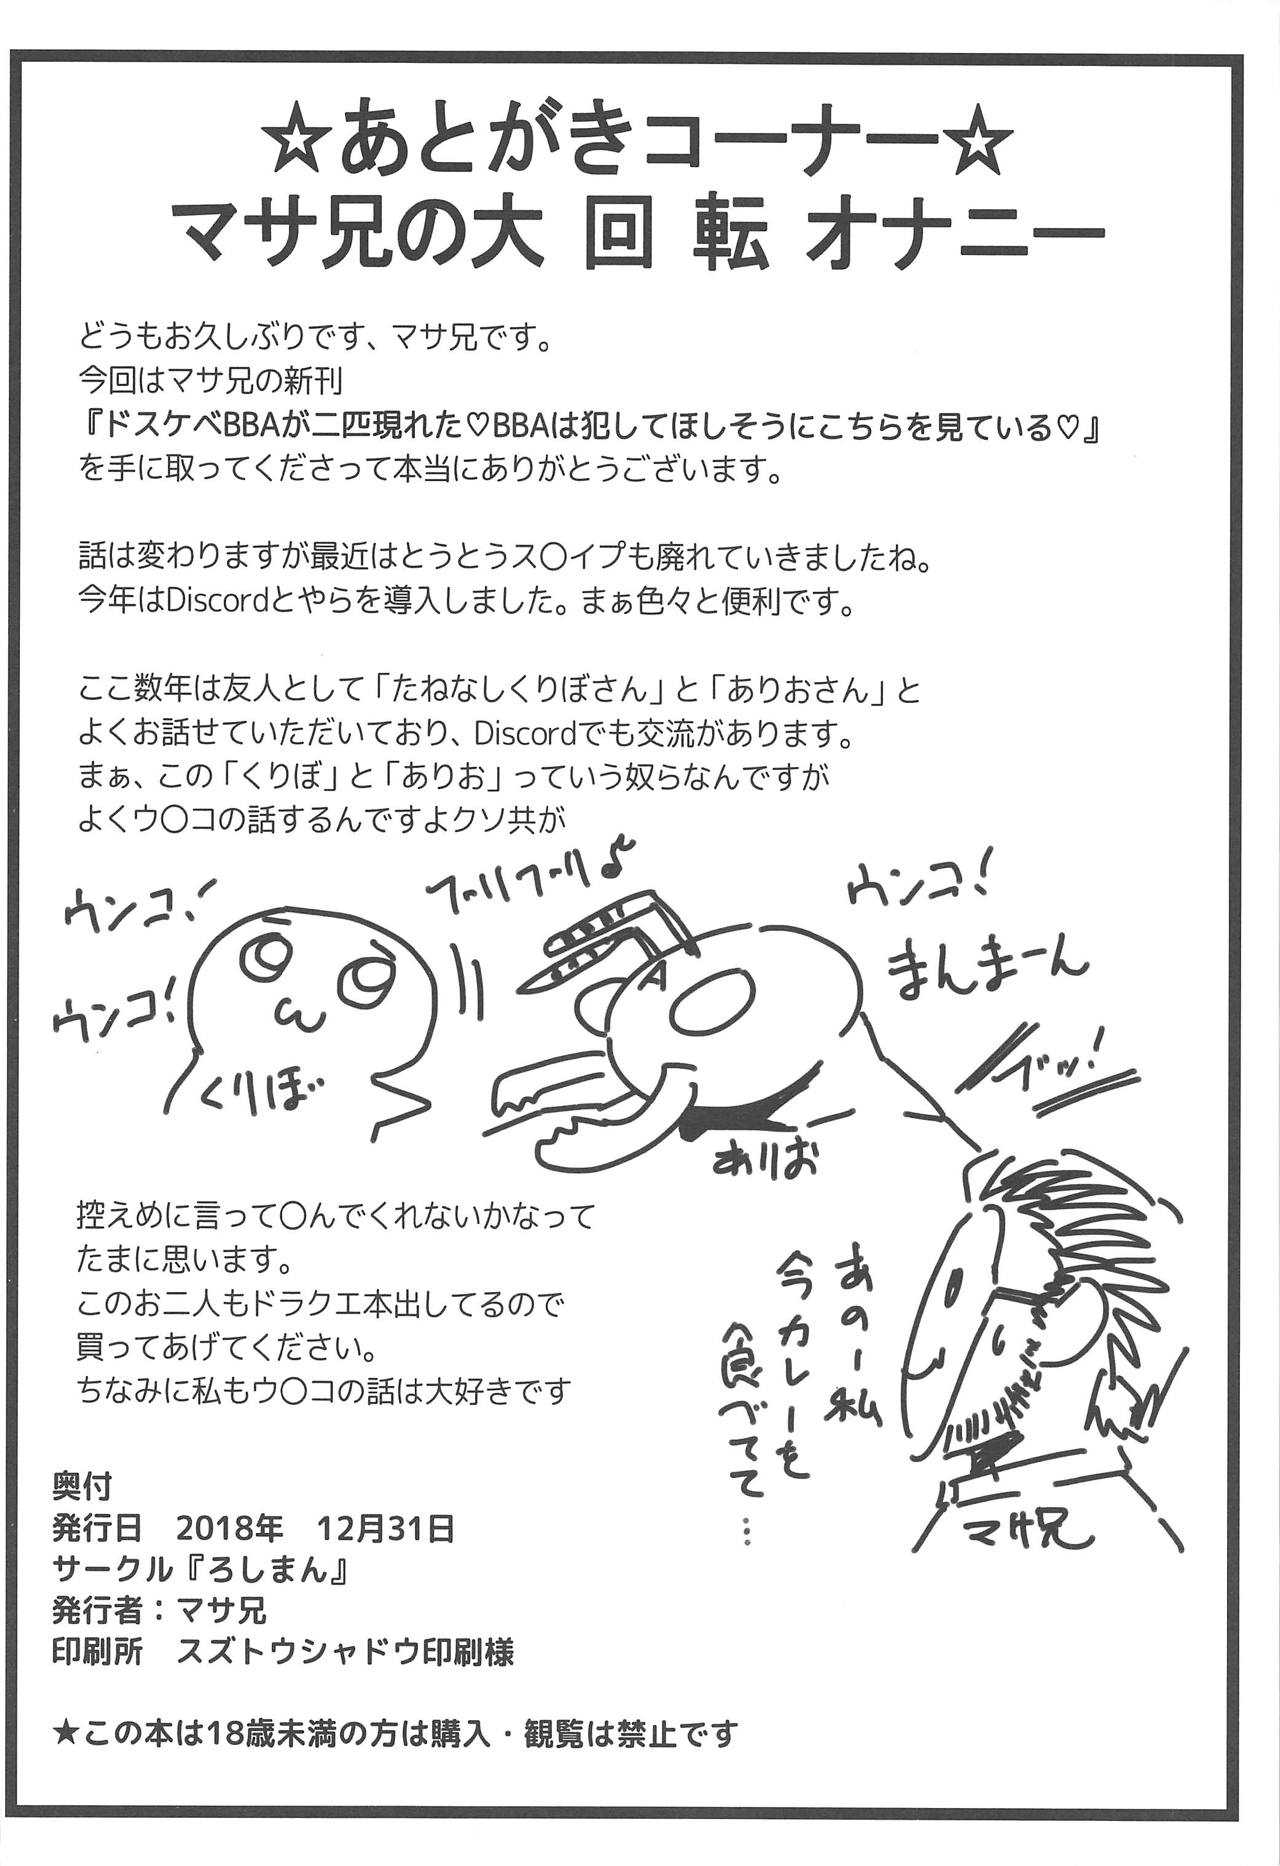 ☆あとがきコーナー☆
マサ兄の大 回 転 オナニー
どうもお久しぶりです、マサ兄です。
今回はマサ兄の新刊
『ドスケベBBAが二匹現れた♡BBAは犯してほしそうにこちらを見ている♡』
を手に取ってくださって本当にありがとうございます。
話は変わりますが最近はとうとうス〇イプも廃れていきましたね。
今年はDiscordとやらを導入しました。まぁ色々と便利です。
ここ数年は友人として「たねなしくりぼさん」と「ありおさん」と
よくお話せていただいており、Discordでも交流があります。
まぁ、この「くりぼ」と「ありお」っていう奴らなんですが
よくウ〇コの話するんですよクソ共が
ウンコ!
ウンコ!
くりぼ
フリフリ♪
A
ありお
ウンコ!
まんまーん
ブッ!
あのー私
今カレーを
食べてて…
マサ兄
控えめに言って〇んでくれないかなって
たまに思います。
このお二人もドラクエ本出してるので
買ってあげてください。
ちなみに私もウ〇コの話は大好きです
奥付
発行日　2018年　12月31日
サークル『ろしまん』
発行者：マサ兄
印刷所　スズトウシャドウ印刷様
★この本は18歳未満の方は購入・観覧は禁止です